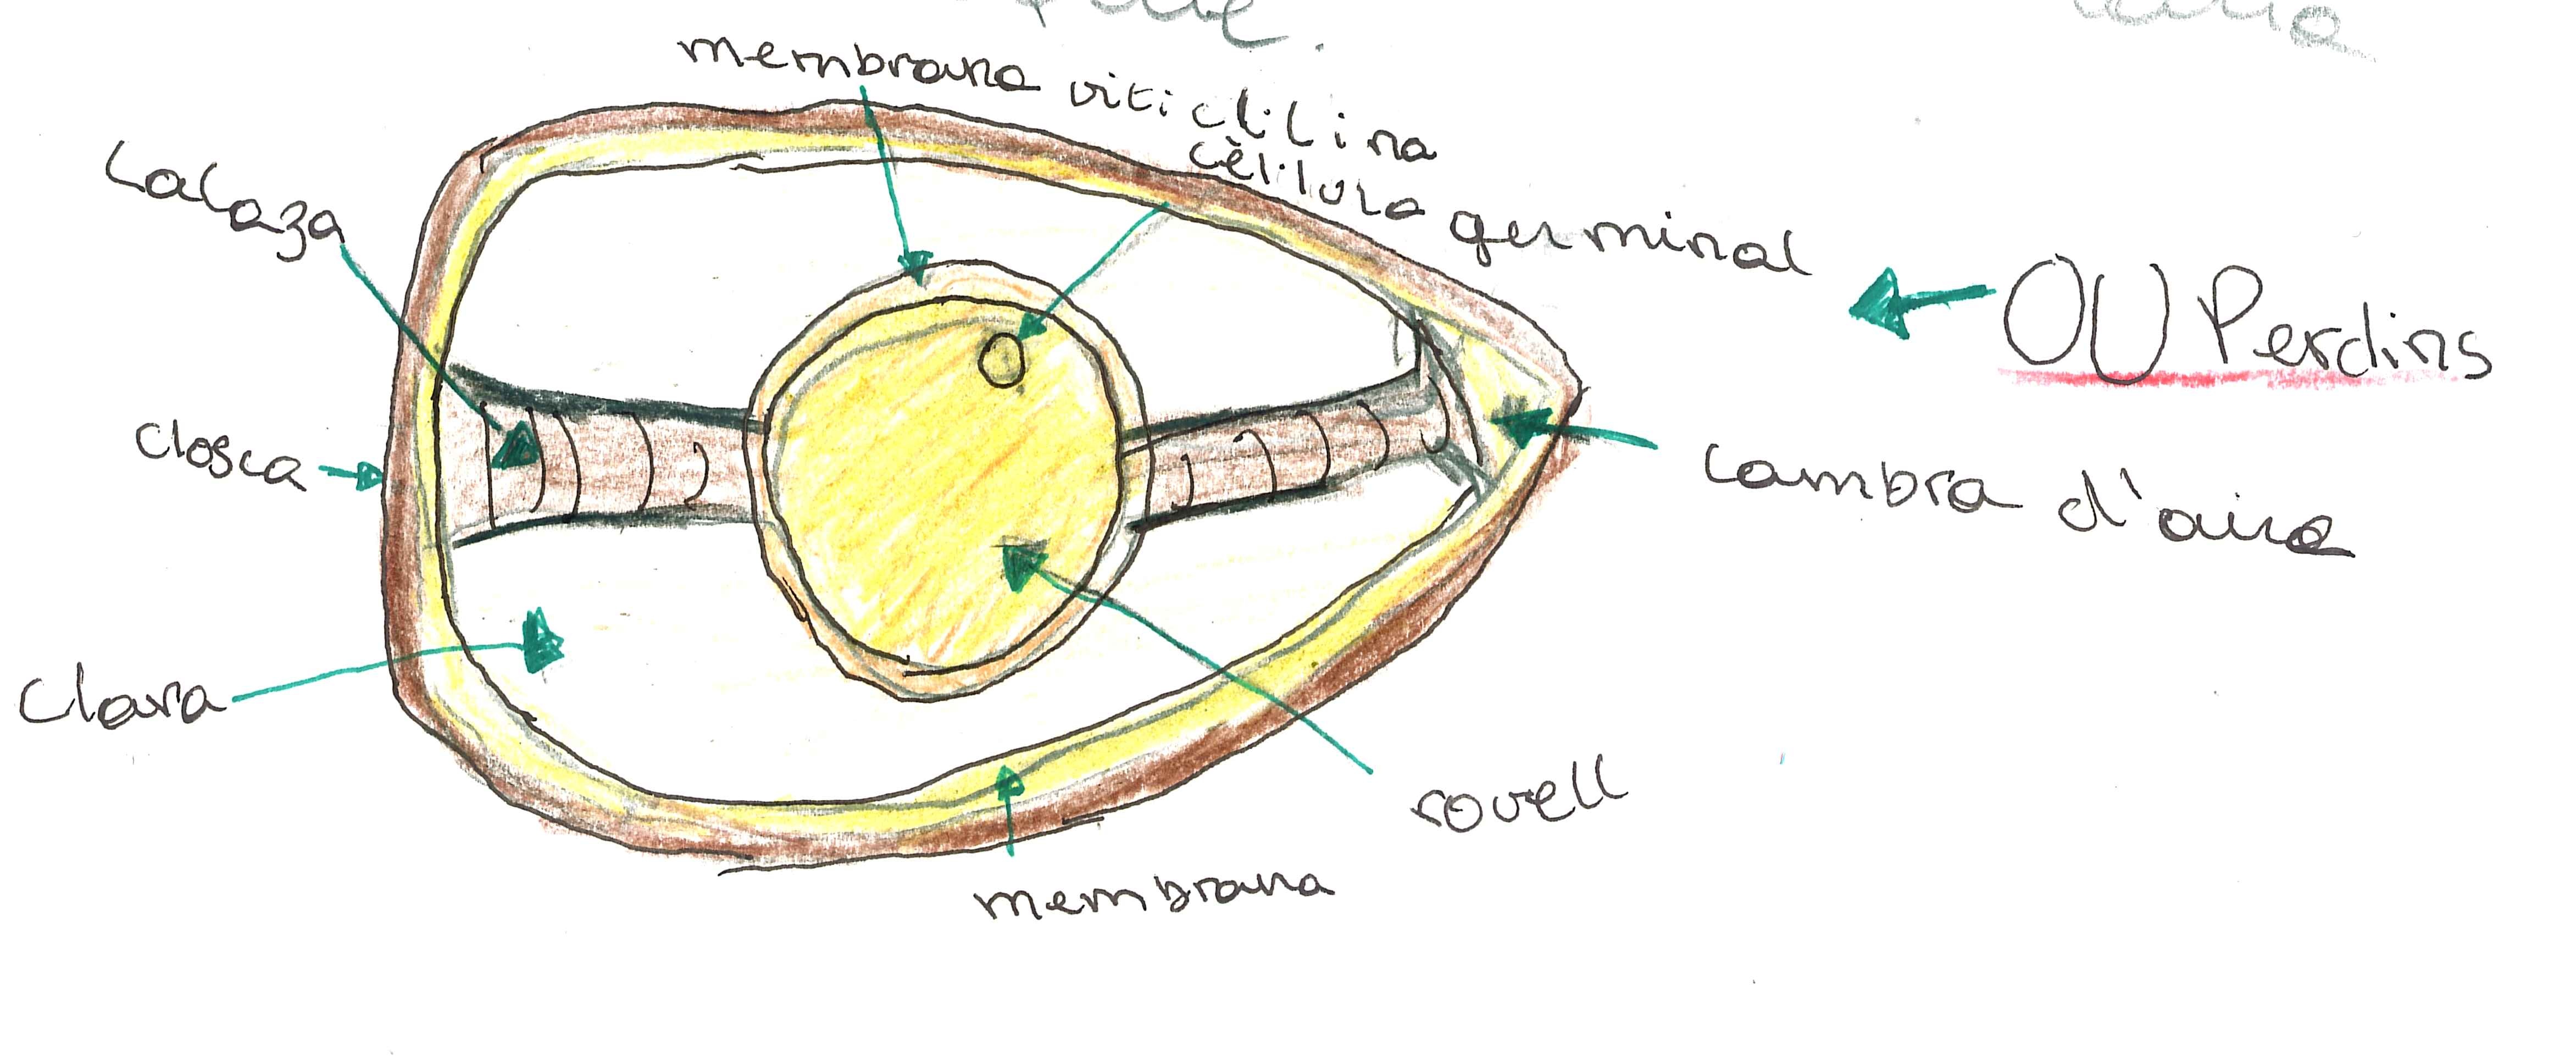 membrana viticl·lina
cèl·lula germinal
calaza
OU Perdins
closca
cambra d'aire
clara
rovell
membrana